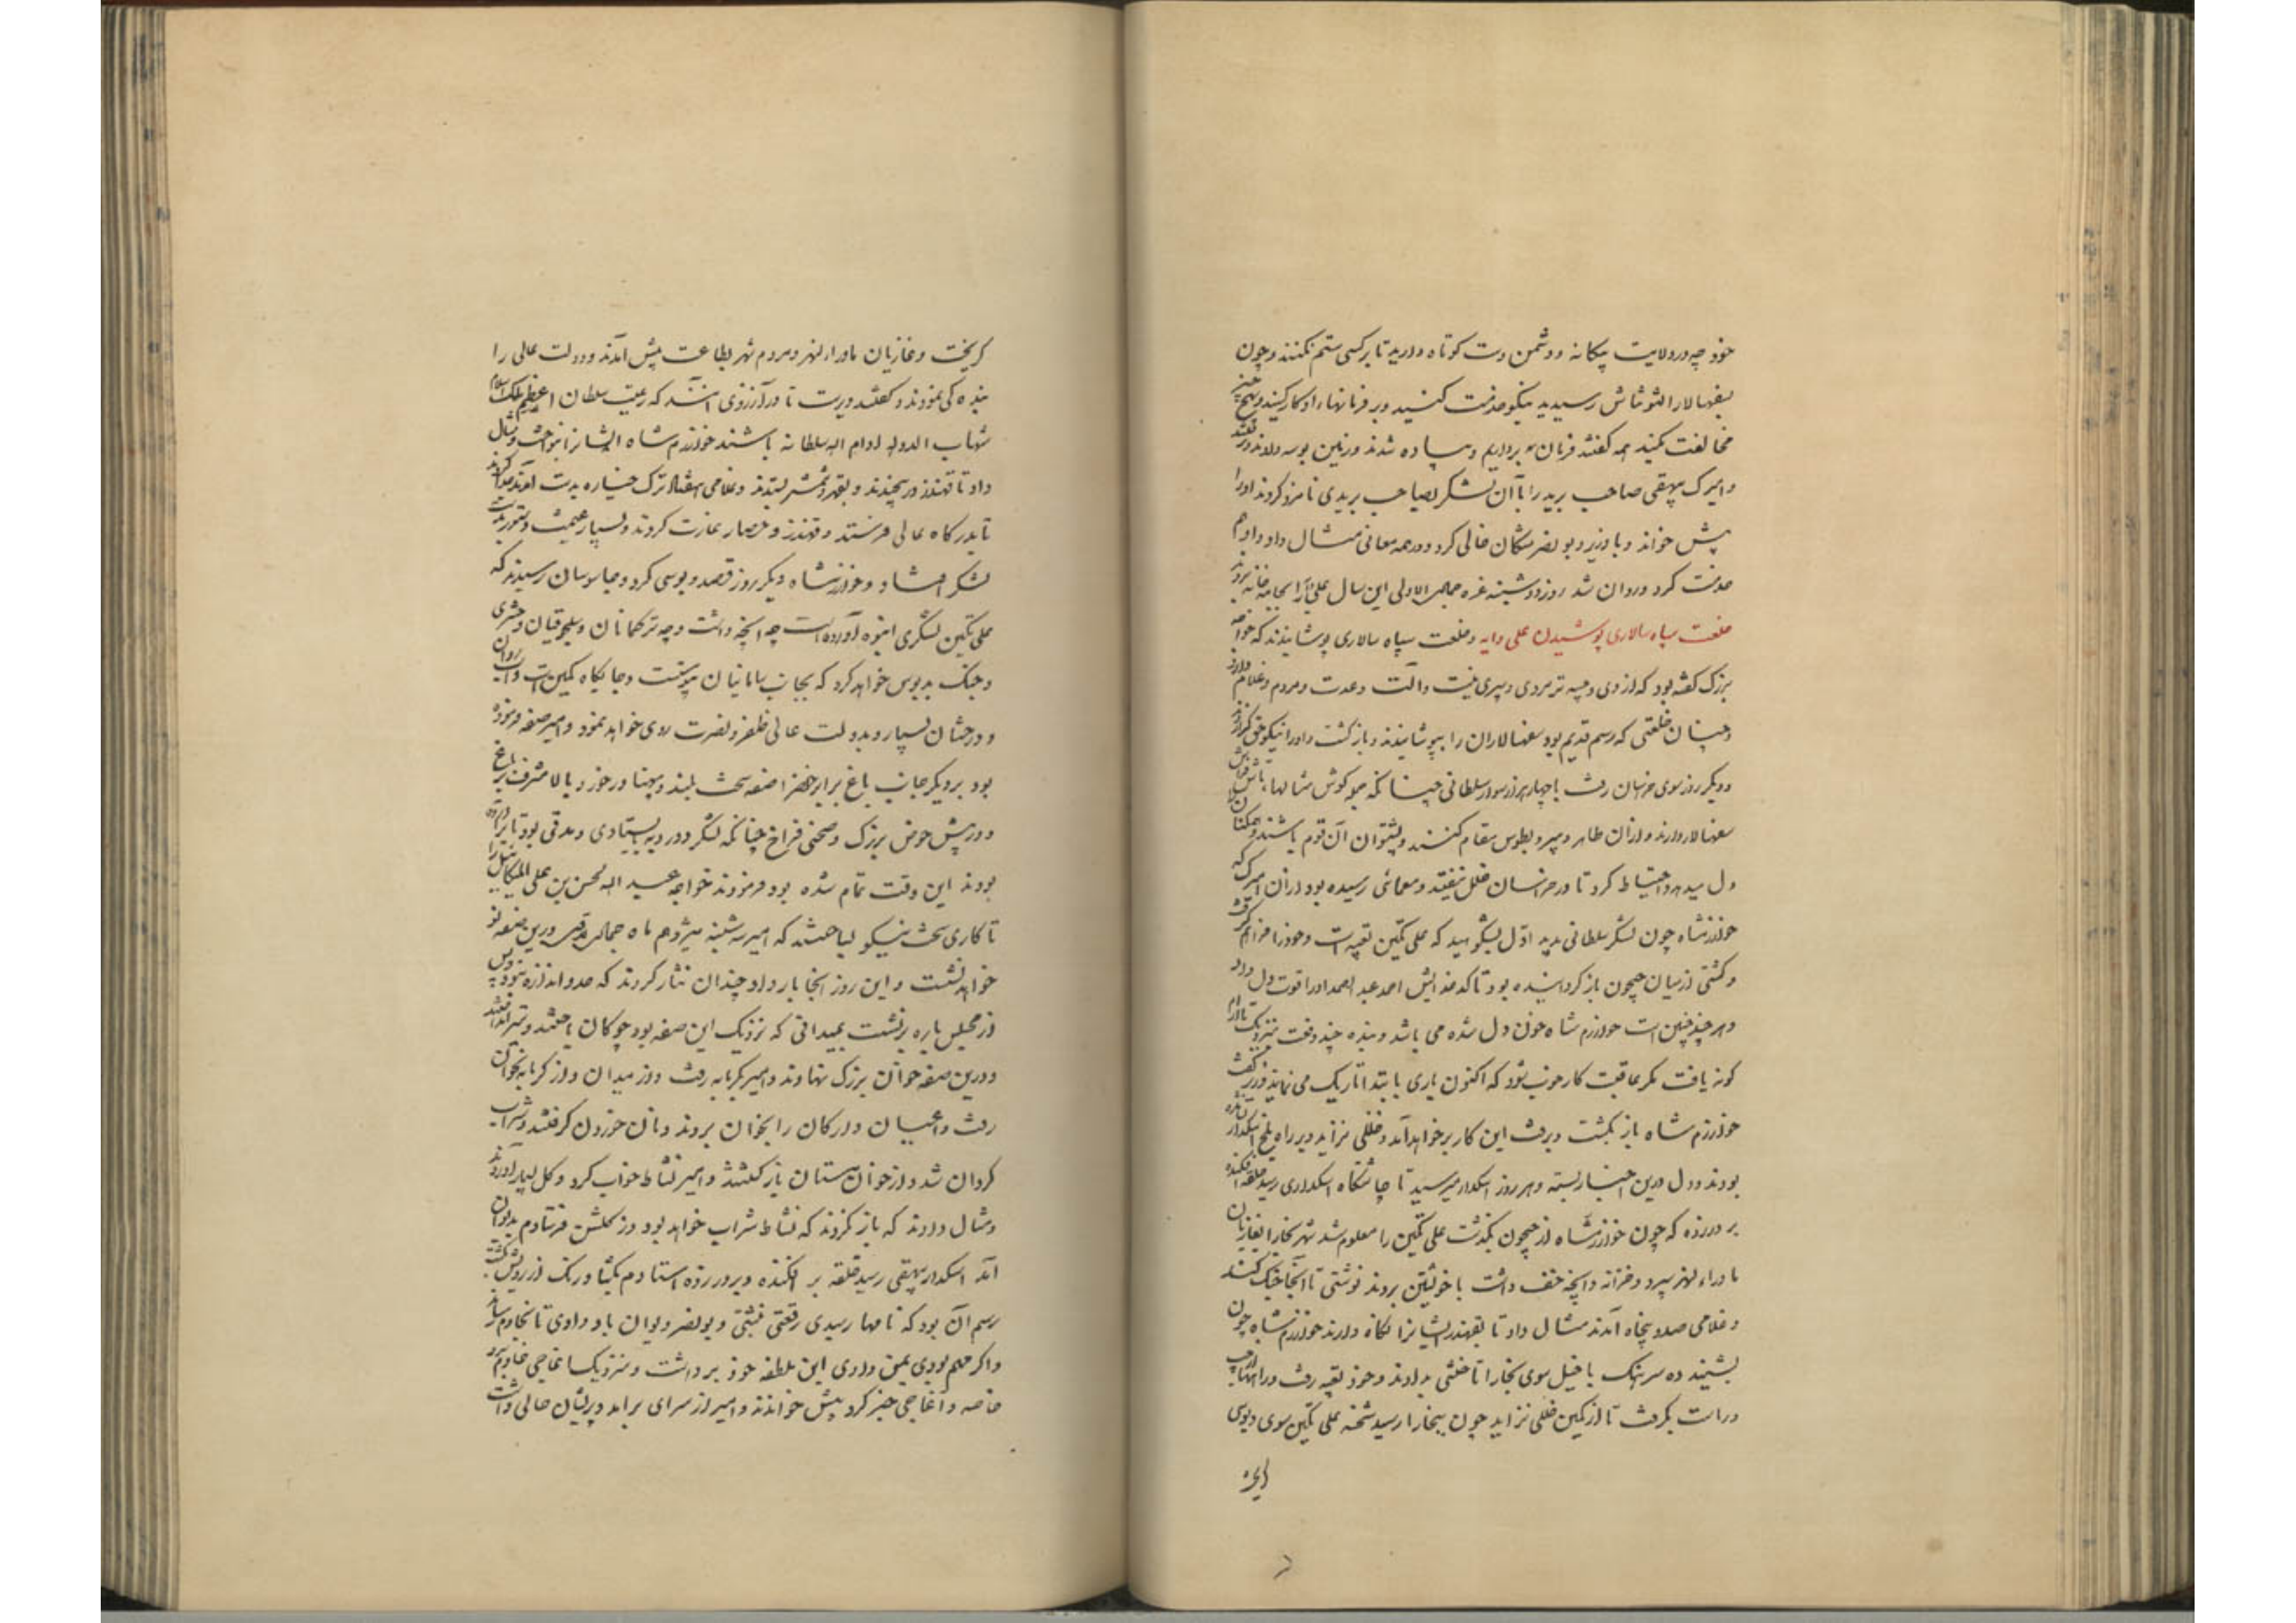 خود چه در ولایت بیکانه و دشمن دست کوتاه دارید تا بر کسی ستم نکنند و چون
بسفهسالار التونتاش رسیدید نیکو خدمت کنید و بر فرمانهاء او کار کنید و بهیچ چیز
مخالفت نکنید همه کفتند فرمان بر داریم و پیاده شدند و زمین بوسه دادند و برفتند
و امیرک بیهقی صاحب برید را با آن لشکر بصاحب بریدی نامزد کردند او را
پیش خواند و با وزیر و بو نصر مشکان خالی کرد و در همه معانی مثال داد و او هم
خدمت کرد و روان شد روز دوشنبه غره جمادی الاولی این سال علی را بجامه خانه بردند
خلعت سپاه سالاری پوشیدن علی دایه و خلعت سپاه سالاری پوشانیدند که خواجه
بزرک کفته بود که از وی وجیه تر مردی و پیری نیست و آلت و عدت و مردم و غلام دارد
و چنان خلعتی که رسم قدیم بود سفهسالاران را بپوشانیدند و باز کشت و او را نیکو حق کزاردند
و دیکر روز سوی خراسان رفت با چهار هزار سوار سلطانی چنانکه همه کوش بمثالهاء تاش فراش
سفهسالار دارند و از آن طاهر دبیر و بطوس مقام کنند و پشتوان آن قوم باشند و همکنان را
دل میدهد و احتیاط کرد تا در خراسان خلل نیفتد و معمائی رسیده بود از آن امیرک که
خوارزمشاه چون لشکر سلطانی بدید اول بشکوهید که علی تکین تعبیه است و خود را فراهم کرفت
و کشتی از میان جیحون باز کردانیده بود تا کدخدایش احمد عبد الصمد او را قوت دل داد
و هر چند چنین است خوارزم شاه خون دل شده می باشد و بنده چند دفعت بنزدیک او رفت تا آرام
کونه یافت مکر عاقبت کار خوب شود که اکنون باری بابتدا تاریک می نماید وزیر کفت
خوارزم شاه باز نکشت و برفت این کار بر خواهد آمد و خللی نزاید و بر راه بلخ اسکدار نشانده
بودند و دل درین اخبار بسته و هر روز اسکدار میرسید تا چاشتکاه اسکداری رسید حلقه افکنده
بر در زده که چون خوارزمشاه از جیحون بکذشت علی تکین را معلوم شد شهر بخارا بغازیان
ماوراء النهر سپرد و خزانه و آنچه خف داشت با خویشتن برد بدبوسی تا آنجا جنک کند
و غلامی صد و پنجاه آمدند مثال داد تا بقهندز ایشانرا نکاه دارند خوارزم شاه چون
بشنید ده سرهنک با خیل سوی بخارا تاختنی بداد و خود تعبیه رفت و راهها از چپ
و راست بکرفت تا از کمین خللی نزاید چون ببخارا رسید شحنه علی تکین سوی دبوسی
کریخت و غازیان ماوراء النهر و مردم شهر بطاعت پیش آمدند و دولت عالی را
بندکی نمودند و کفتند دیرست تا در آرزوی آنند که رعیت سلطان اعظم ملک اسلام
شهاب الدوله ادام الله سلطانه باشند خوارزم شاه ایشانرا بنواخت و مثال
داد تا قهندز در پیچیدند و بقهر و شمشیر بستدند و غلامی هفتاد ترک خیاره بدست آمدند جدا کردند
تا بدرکاه عالی فرستد و قهندز و حصار غارت کردند و بسیار غنیمت و ستور بدست
لشکر افتاد و خوارزمشاه دیکر روز قصد دبوسی کرد و جاسوسان رسیدند که
علی تکین لشکری انبوه آورده است چه آنچه داشت و چه ترکمانان و سلجوقیان و حشری
و جنک بدبوس خواهد کرد که بجانب سامانیان پیوستست و جایکاه کمین است و آب روان
و درختان بسیار و بدولت عالی ظفر و نصرت روی خواهد نمود و امیر صفه فرموده
بود بر دیکر جانب باغ برابر خضرا صفه سخت بلند و پهنا در خورد بالا مشرف بر باغ
و در پیش حوض بزرک و صحنی فراخ چنانکه لشکر دو رویه بایستادی و مدتی بود تا بر آورده
بودند این وقت تمام شده بود فرمودند خواجه عبد الله الحسن بن علی المیکائیل را
تا کاری سخت نیکو بساختند که امیر سه شنبه سیزدهم ماه جمادی درین صفه نو
خواهد نشست و این روز آنجا بار داد و چندان نثار کردند که حد و اندازه نبود و پس
از مجلس بار بر نشست بمیدانی که نزدیک این صفه بود چوکان باختند و تیر انداختند
و درین صفه خوان بزرک نهادند و امیر بکرمابه رفت و از میدان و از کرمابه بخوان
رفت و اعیان و ارکان را بخوان بردند و نان خوردن کرفتند و شراب
کردان شد و از خوان مستان باز کشتند و امیر نشاط خواب کرد و کل بسیار آوردند
و مثال دادند که باز نکردند که نشاط شراب خواهد بود در کلشن و شادم بدیوان
آمد اسکدار بیهقی رسید حلقه بر افکنده و بر در زده استادم بکشاد رنک از رویش بکشت
رسم آن بود که نامها رسیدی رقعتی نبشتی و بو نصر دیوان بان دادی تا بخادم رساند
و اکر مهم بودی بمن دادی این ملطفه خود بر داشت و بنزدیک آغاجی خادم برد
خاصه و آغاجی خبر کرد پیش خواندند و امیر از سرای بر آمد و پریشان حالی داشت